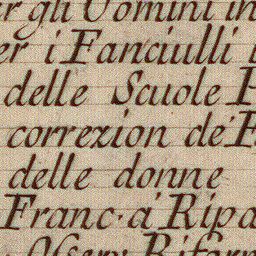 er gli Uomini in
er i Fanciulli
delle Scuole P
correzion de' F
delle donne
Franc. a Ripa
Osserv. Riform